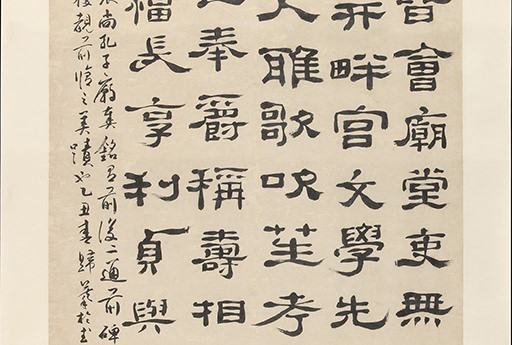 皆會廟堂吏無
并畔宮文學先
人雅歌吹笙考
奉爵稱壽相
福長享利貞與
尚孔子廟奏銘有前後二通前碑
後觀前脩之美蹟也乙丑春歸